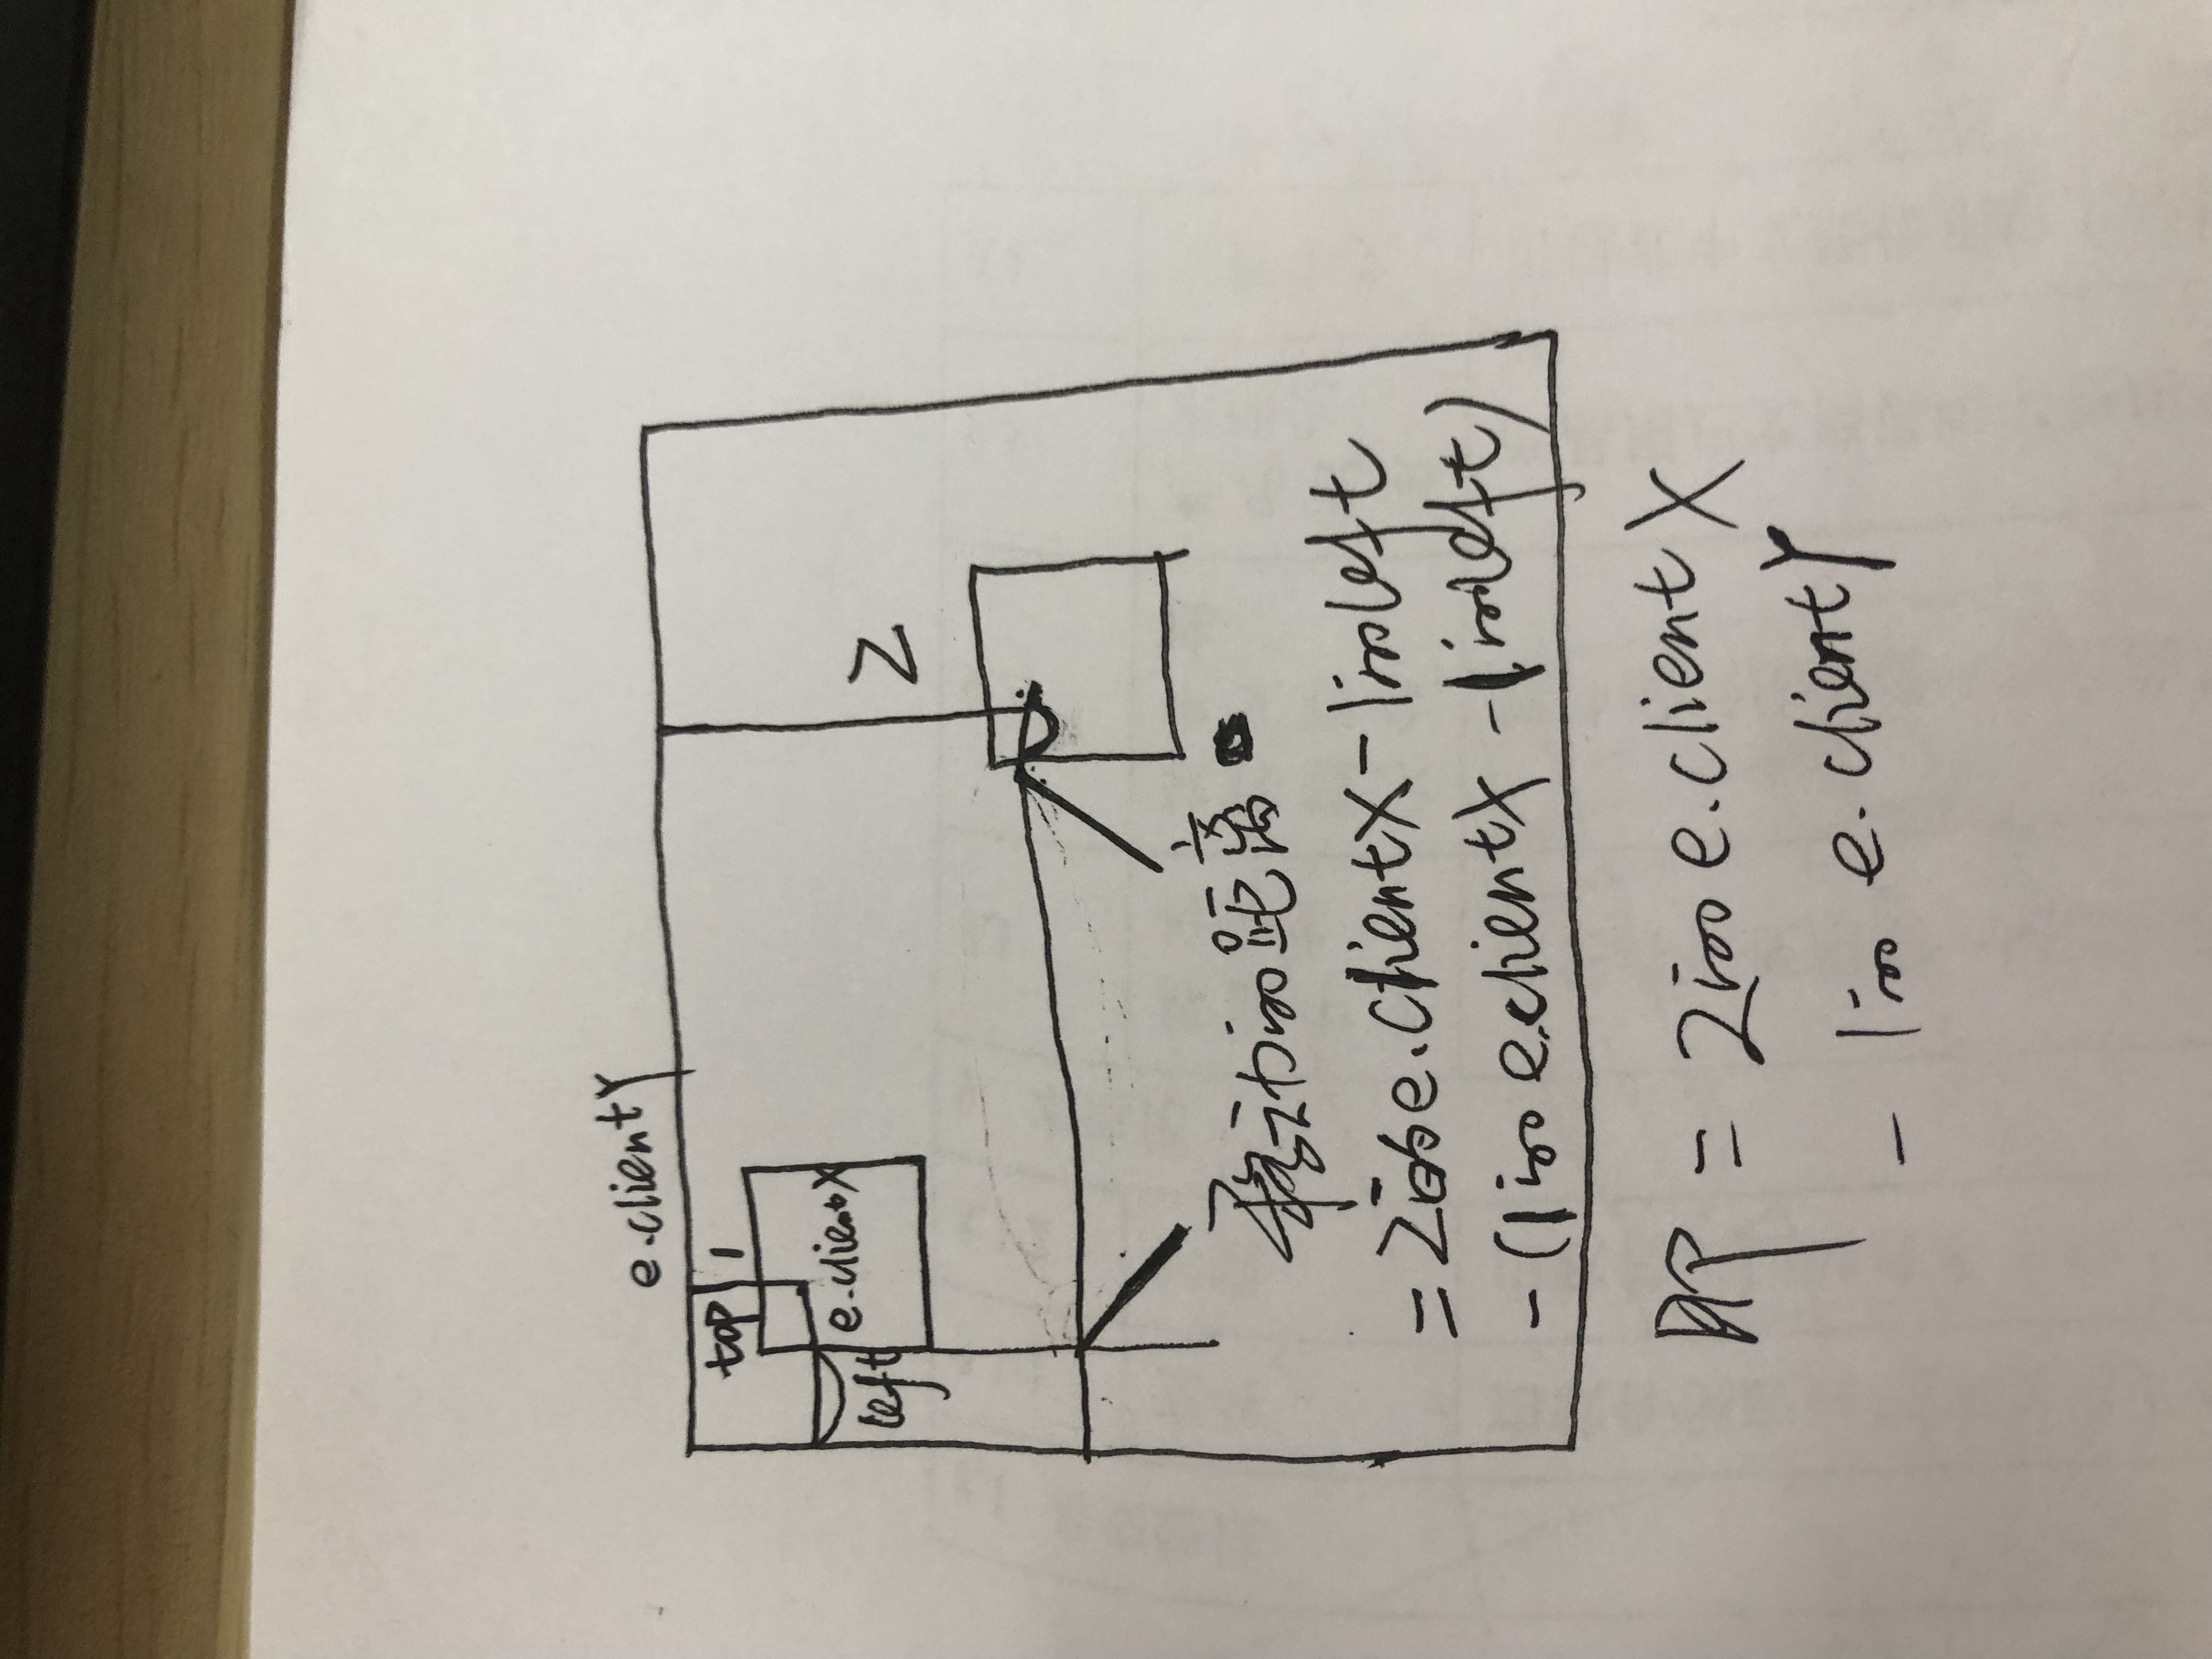 e.clientY
top 1
e.clientX
left
2
移动的距离
=2的e.clientX-1的left
-(1的e.clientX-1的left)
即=2的e.clientX
-1的e.clientY